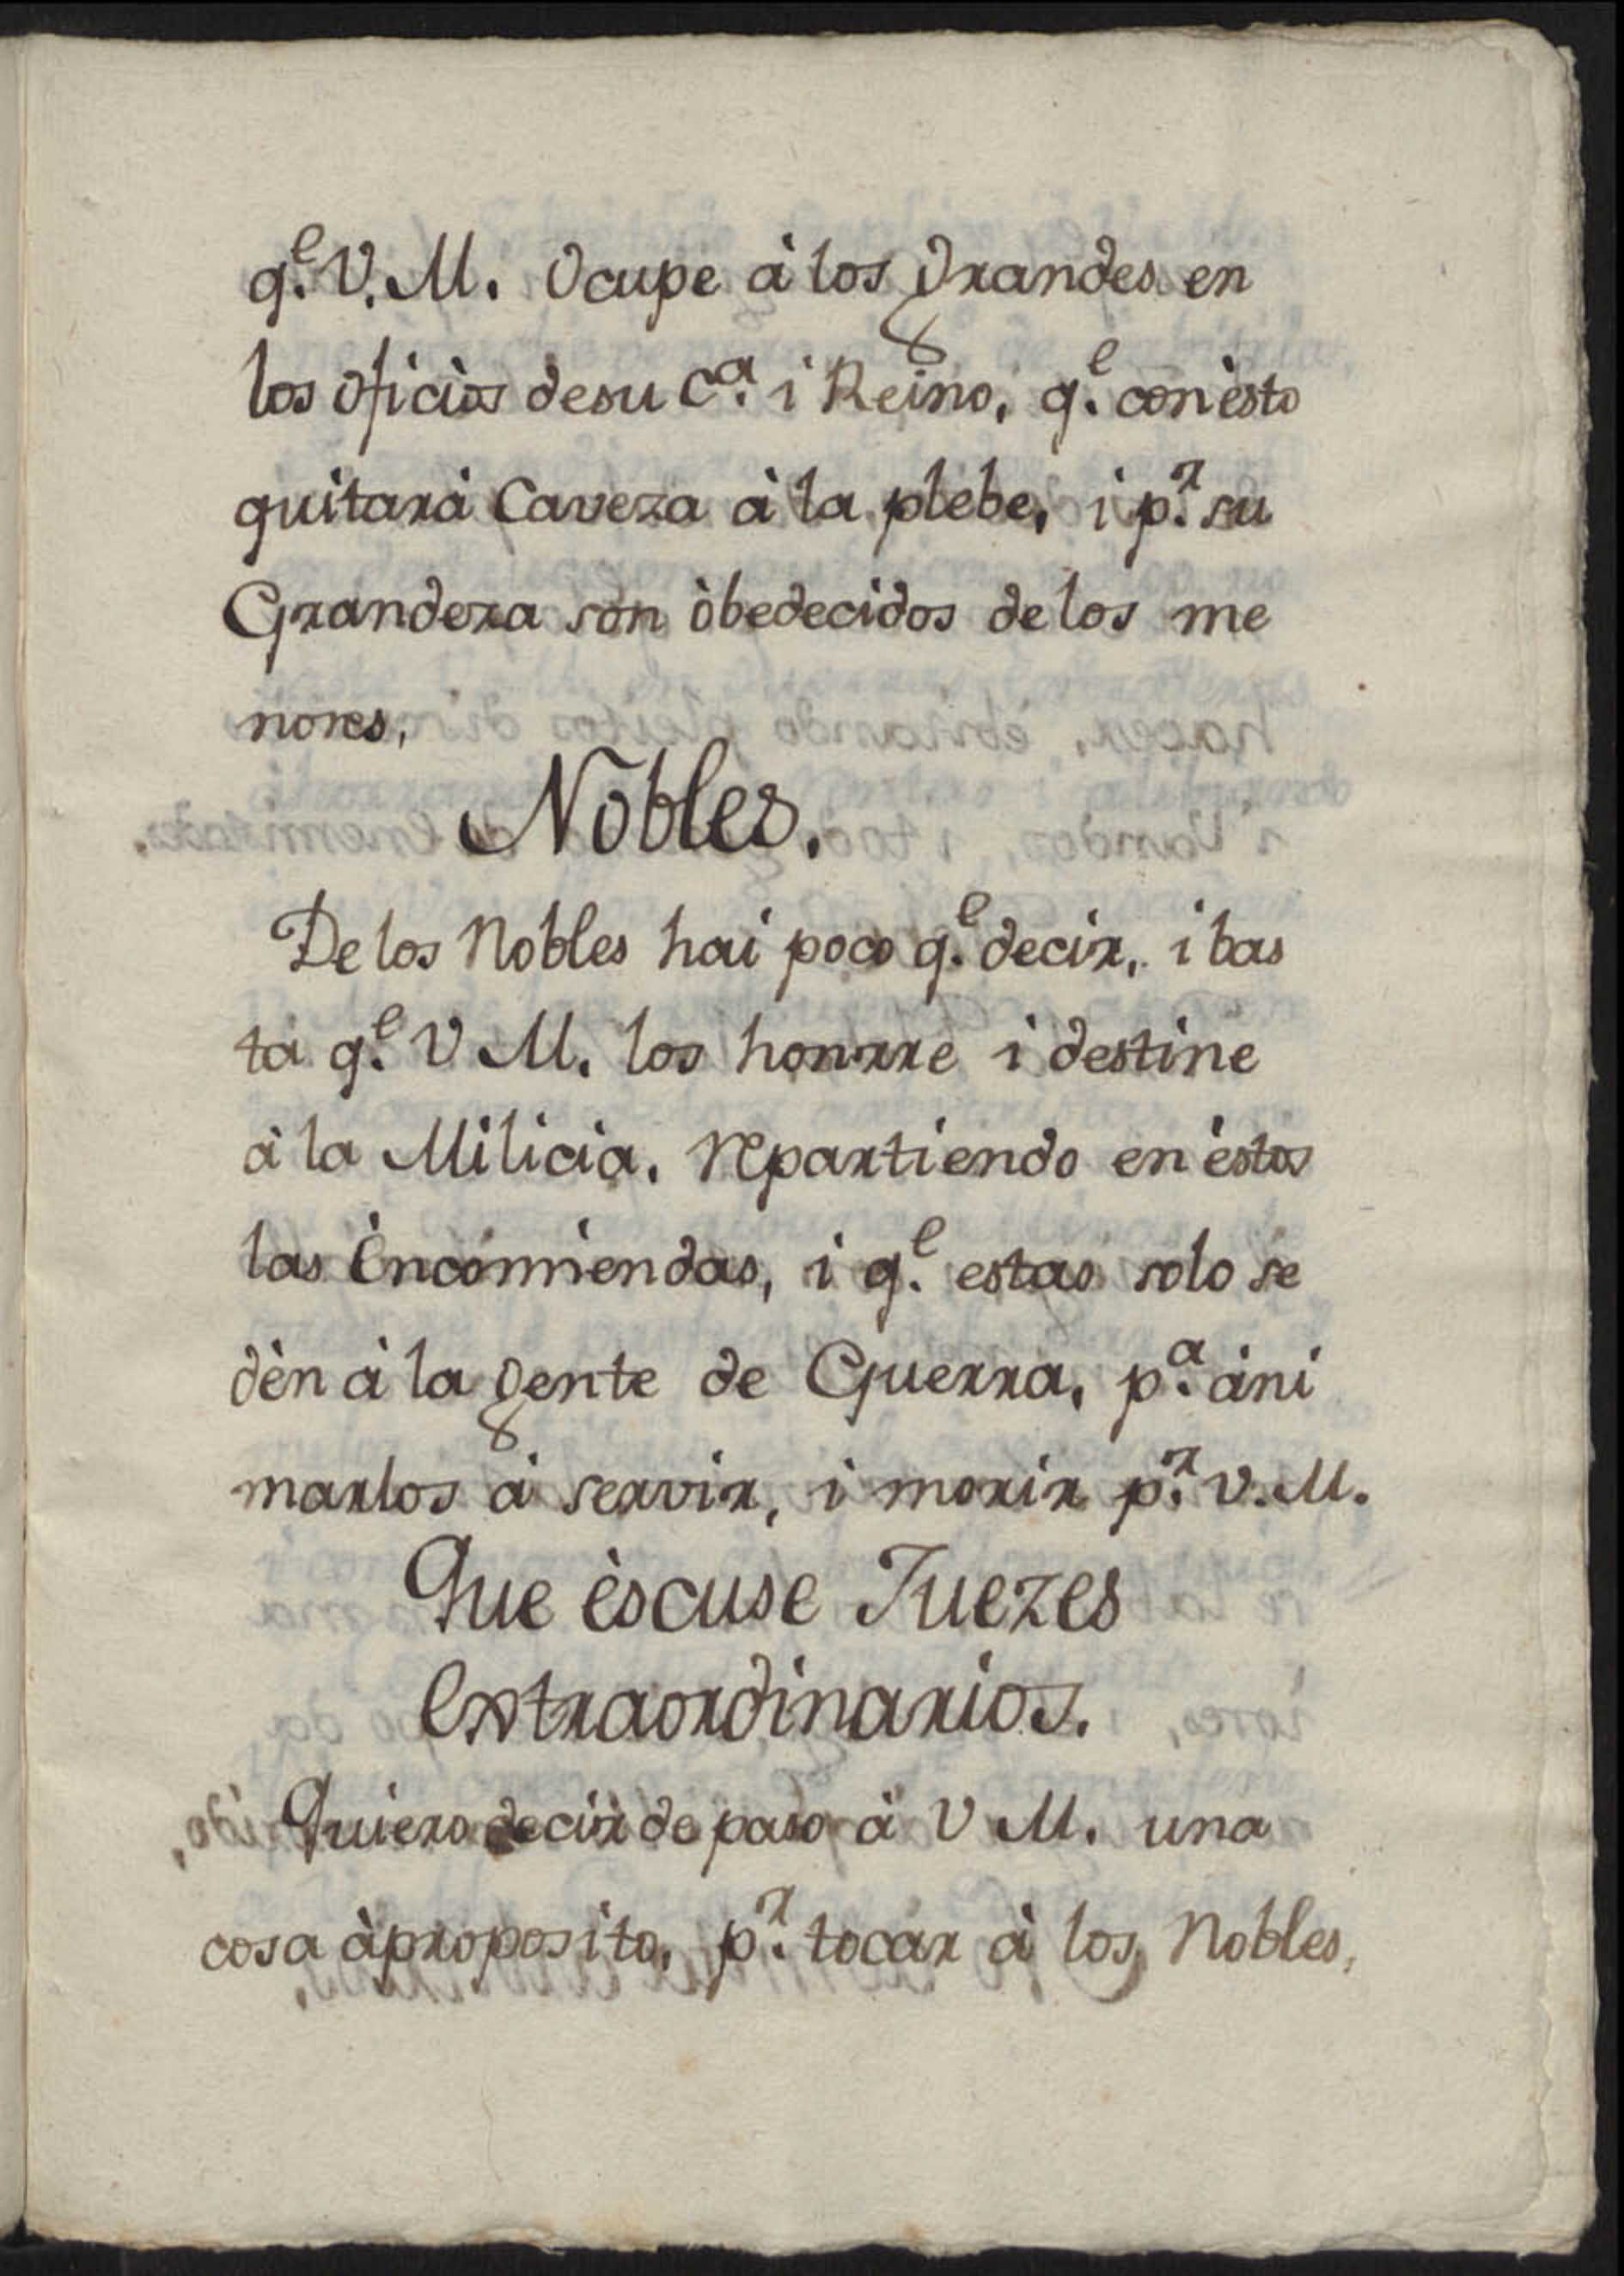 q.^e V. M. Ocupe à los grandes en
los oficiòs desu C.^a i Reino, q.^e con èsto
quitarà Caveza à la plebe, i p.^r su
Grandeza son òbedecidos de los me
nores,
Nobles.
De los Nobles hai poco q.^e decir, i bas
ta q.^e V M. los honrre i destine
à la Milicia. repartiendo en èstos
las Èncomiendas, i q.^e estas solo se
dèn à la gente de Guerra, p.^a àni
marlos à servir, i morir p.^r V. M.
Que èscuse Juezes
Extraordinarios.
Quiero decir de paso à V M. una
cosa àproposito, p.^r tocar à los Nobles,